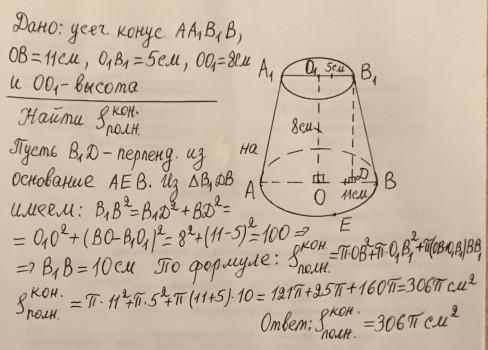 Дано: усеч. конус AA₁B₁B,
OB=11см, O₁B₁=5см, OO₁=8см
и OO₁-высота
Найти Sполн.^кон.
Пусть B₁D-перпенд. из B₁ на
основание AEB. Из △B₁DB
имеем: B₁B²=B₁D²+BD²=
=O₁O²+(BO-B₁O₁)²=8²+(11-5)²=100 ⇒
⇒ B₁B=10см По формуле: Sполн.^кон.=π·OB²+π·O₁B₁²+π(OB+O₁B₁)BB₁
Sполн.^кон.=π·11²+π·5²+π(11+5)·10=121π+25π+160π=306π см²
Ответ: Sполн.^кон.=306π см²
A₁ O₁ 5см B₁
8см
A O D B
11см
E